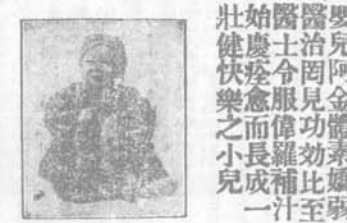 嬰兒阿金體素嬌弱
醫治罔見功效比至
醫士令服偉羅補汁
始慶痊愈而長成一
壯健快樂之小兒